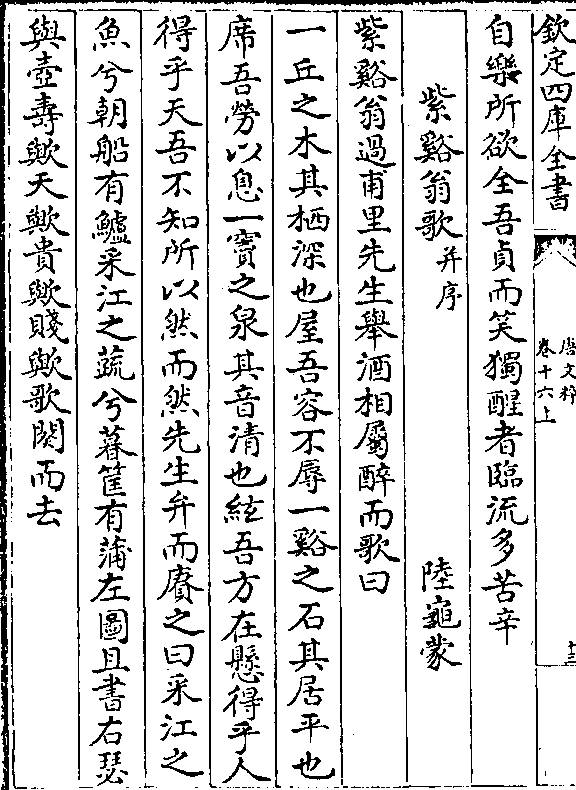 欽定四庫全書
唐文粹
卷十六上
十三
自樂所欲全吾貞而笑獨醒者臨流多苦辛
紫谿翁歌并序 陸龜蒙
紫谿翁過甫里先生舉酒相屬醉而歌曰
一丘之木其栖深也屋吾容不辱一谿之石其居平也
席吾勞以息一竇之泉其音清也絃吾方在懸得乎人
得乎天吾不知所以然而然先生弁而賡之曰采江之
魚兮朝船有鱸采江之蔬兮暮筐有蒲左圖且書右瑟
與壺壽歟夭歟貴歟賤歟歌闋而去